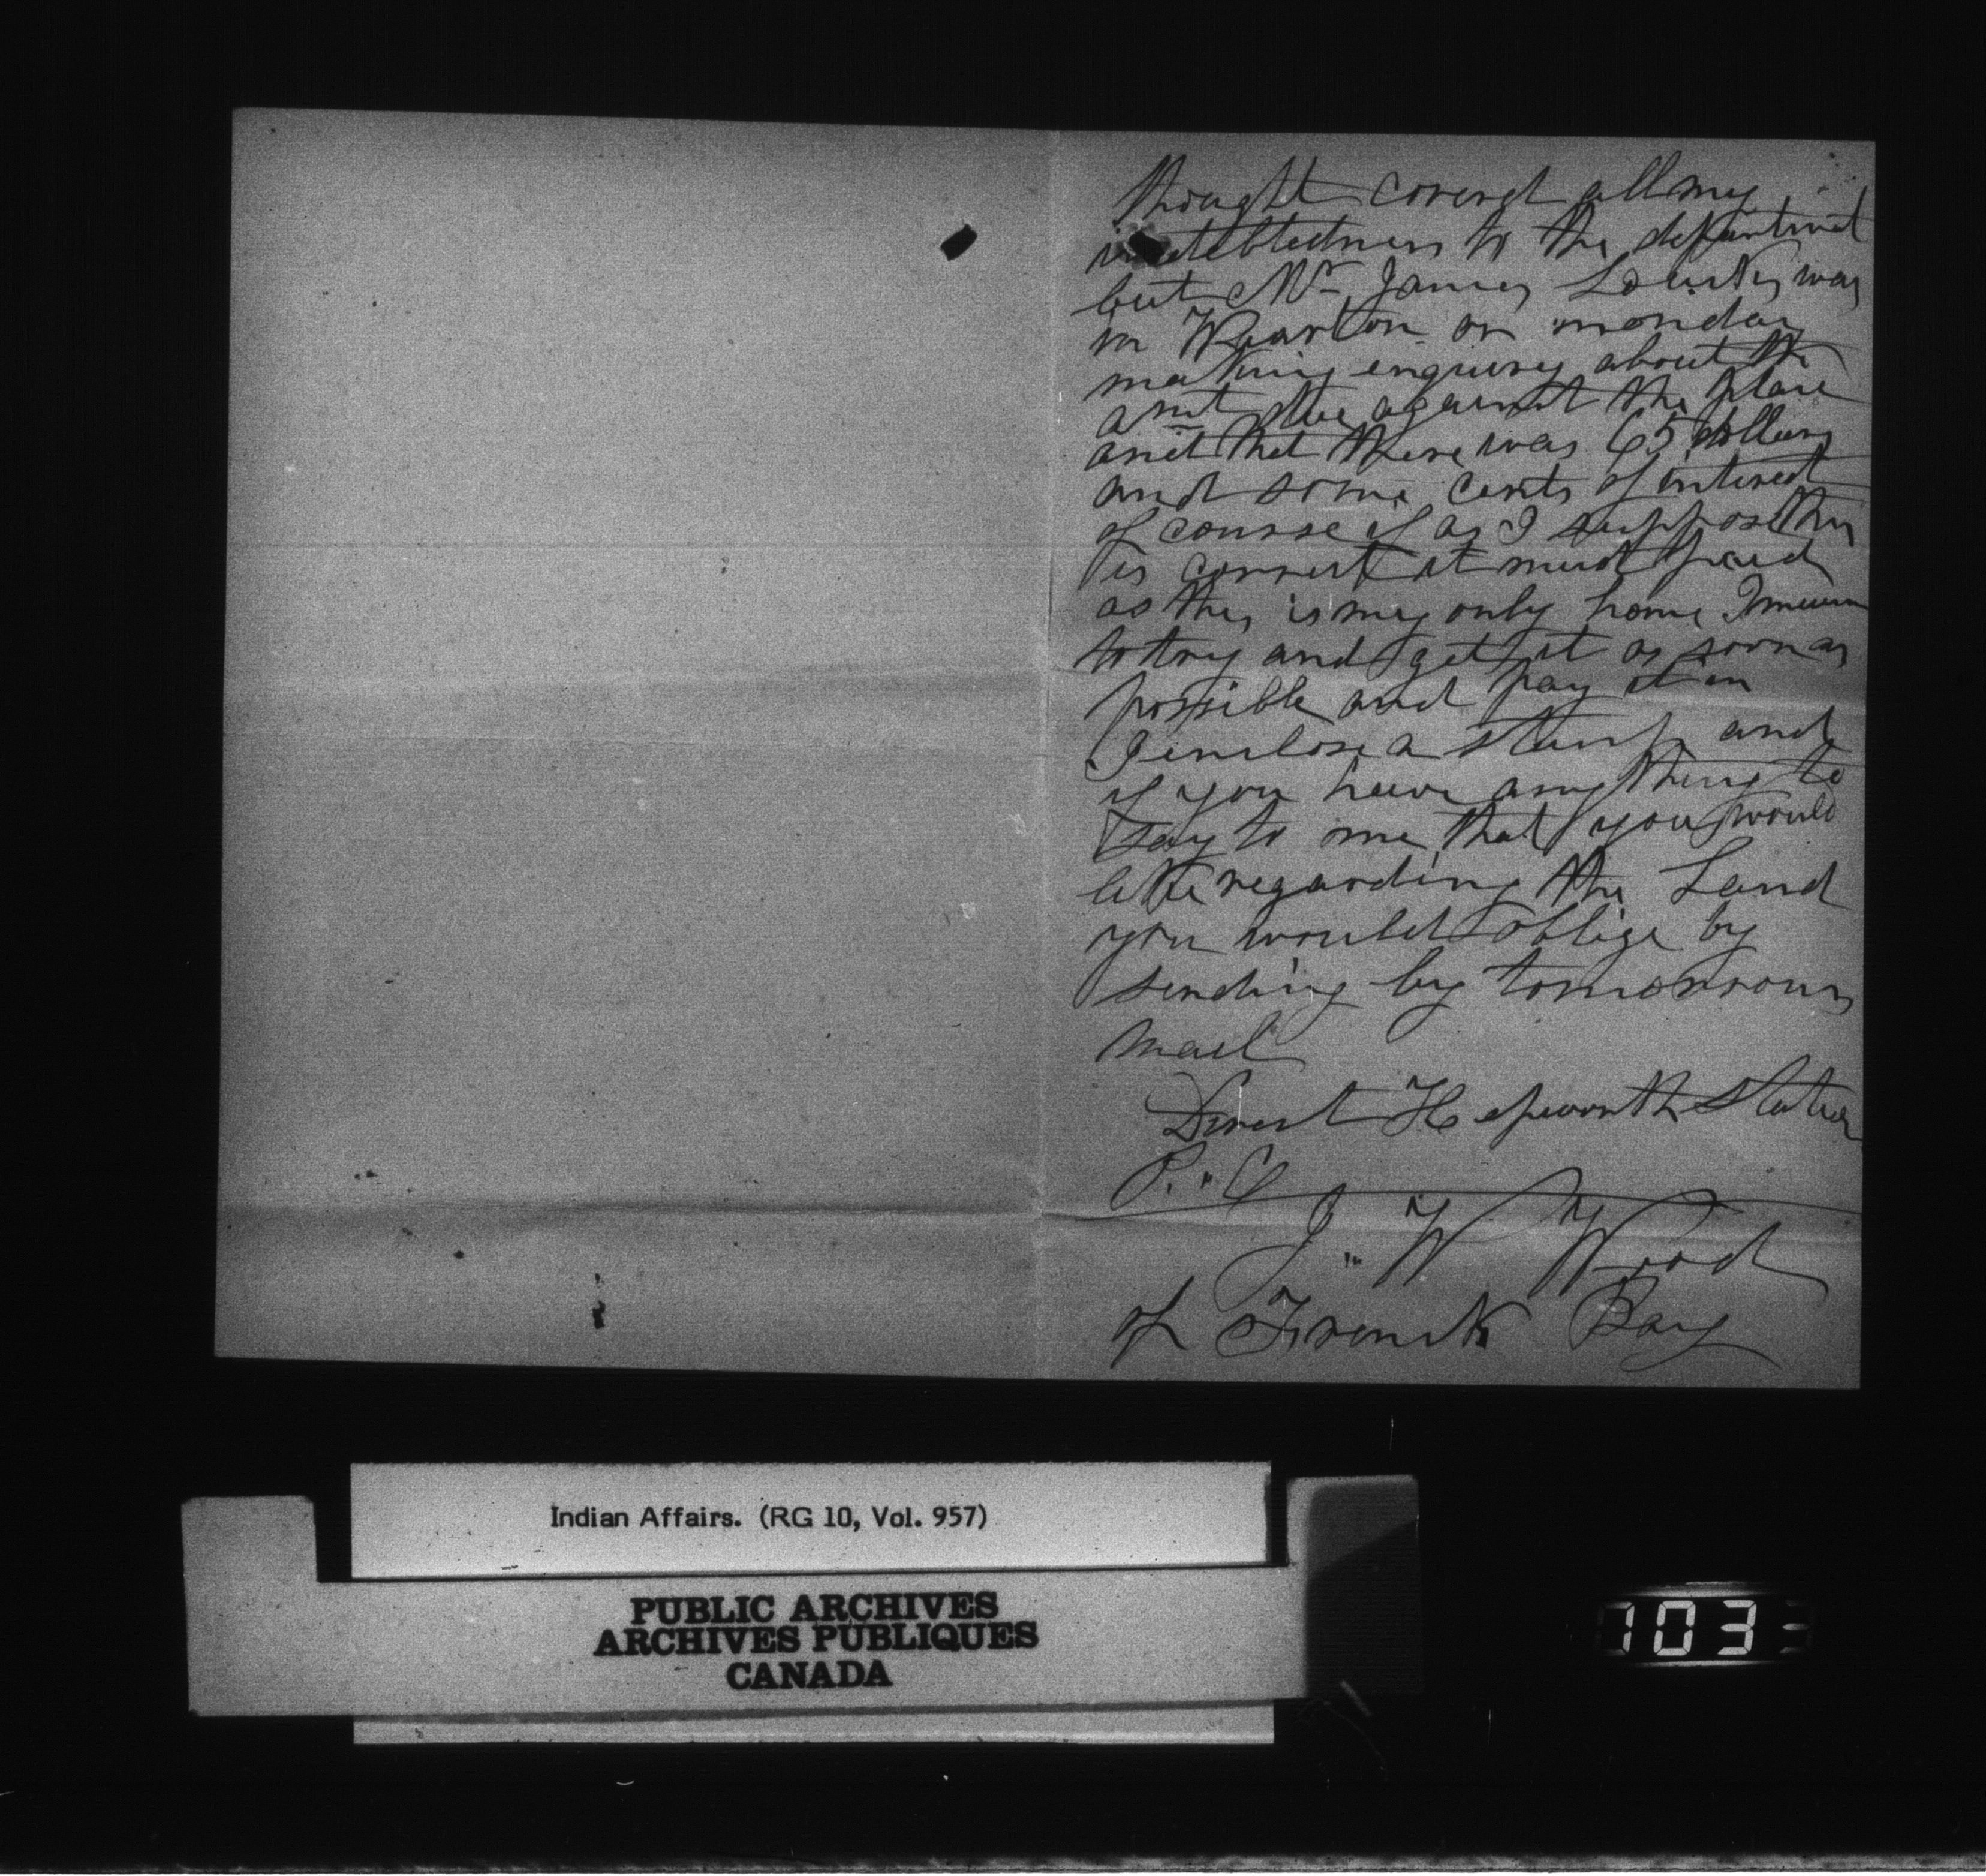 thought coverd all my
indebtedness to the department
but Mr James Loucks was
in Wiarton on monday
making enquirey about the
amt due against the place
and that there was 65 dollars
and some cents of interest
of course if as I suppose this
is correct it must paid
as this is my only home I mean
to try and get it as soon as
possible and pay it in
I enclose a stamp and
if you have any thing to
say to me that you would
like regarding the Land
you would oblige by
sending by tomorrows
mail
Direct Hepworth Station
P. O
J. W Wood
of French Bay
Indian Affairs. (RG 10, Vol. 957)
PUBLIC ARCHIVES
ARCHIVES PUBLIQUES
CANADA
1033